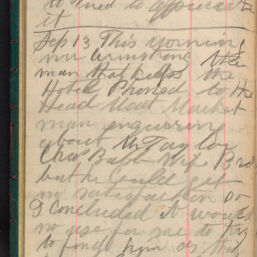 to tried to appreciate
it
Sep 13 This morning
mr Armstrong the
man that keeps the
Hotel Phoned to the
Head Meat Market
man enquiring
about Mr Taylor
Chas Babb Wife Bro
but he Could get
no satisfaction so
I Concluded it would
no use for me to try
to find him as that